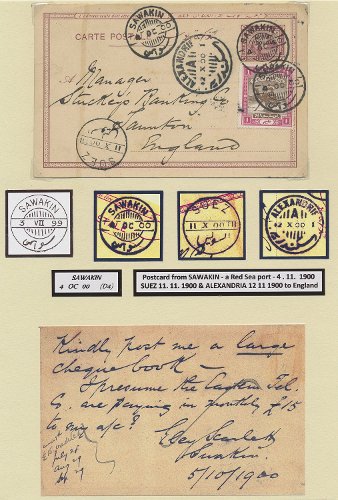 CARTE POSTALE
SAWAKIN
OC 00
ALEXANDRIE
A
12 X 00 1
SAWAKIN
A. Manager
Stuckeys Banking Co
Taunton
England
SUEZ
11 X 00
SAWAKIN
3 VII 99
SAWAKIN
OC 00
SUEZ
11 X 00
ALEXANDRIE
A
12 X 00 1
SAWAKIN
4 OC 00 (D4)
Postcard from SAWAKIN - a Red Sea port - 4 . 11. 1900
SUEZ 11. 11. 1900 & ALEXANDRIA 12 11 1900 to England
Kindly post me a large
cheque book –
I presume the Eastern Tel.
Co. are paying in monthly £15
to my a/c?
Scarlett
Suakin
5/10/1900
July 28
Aug 29